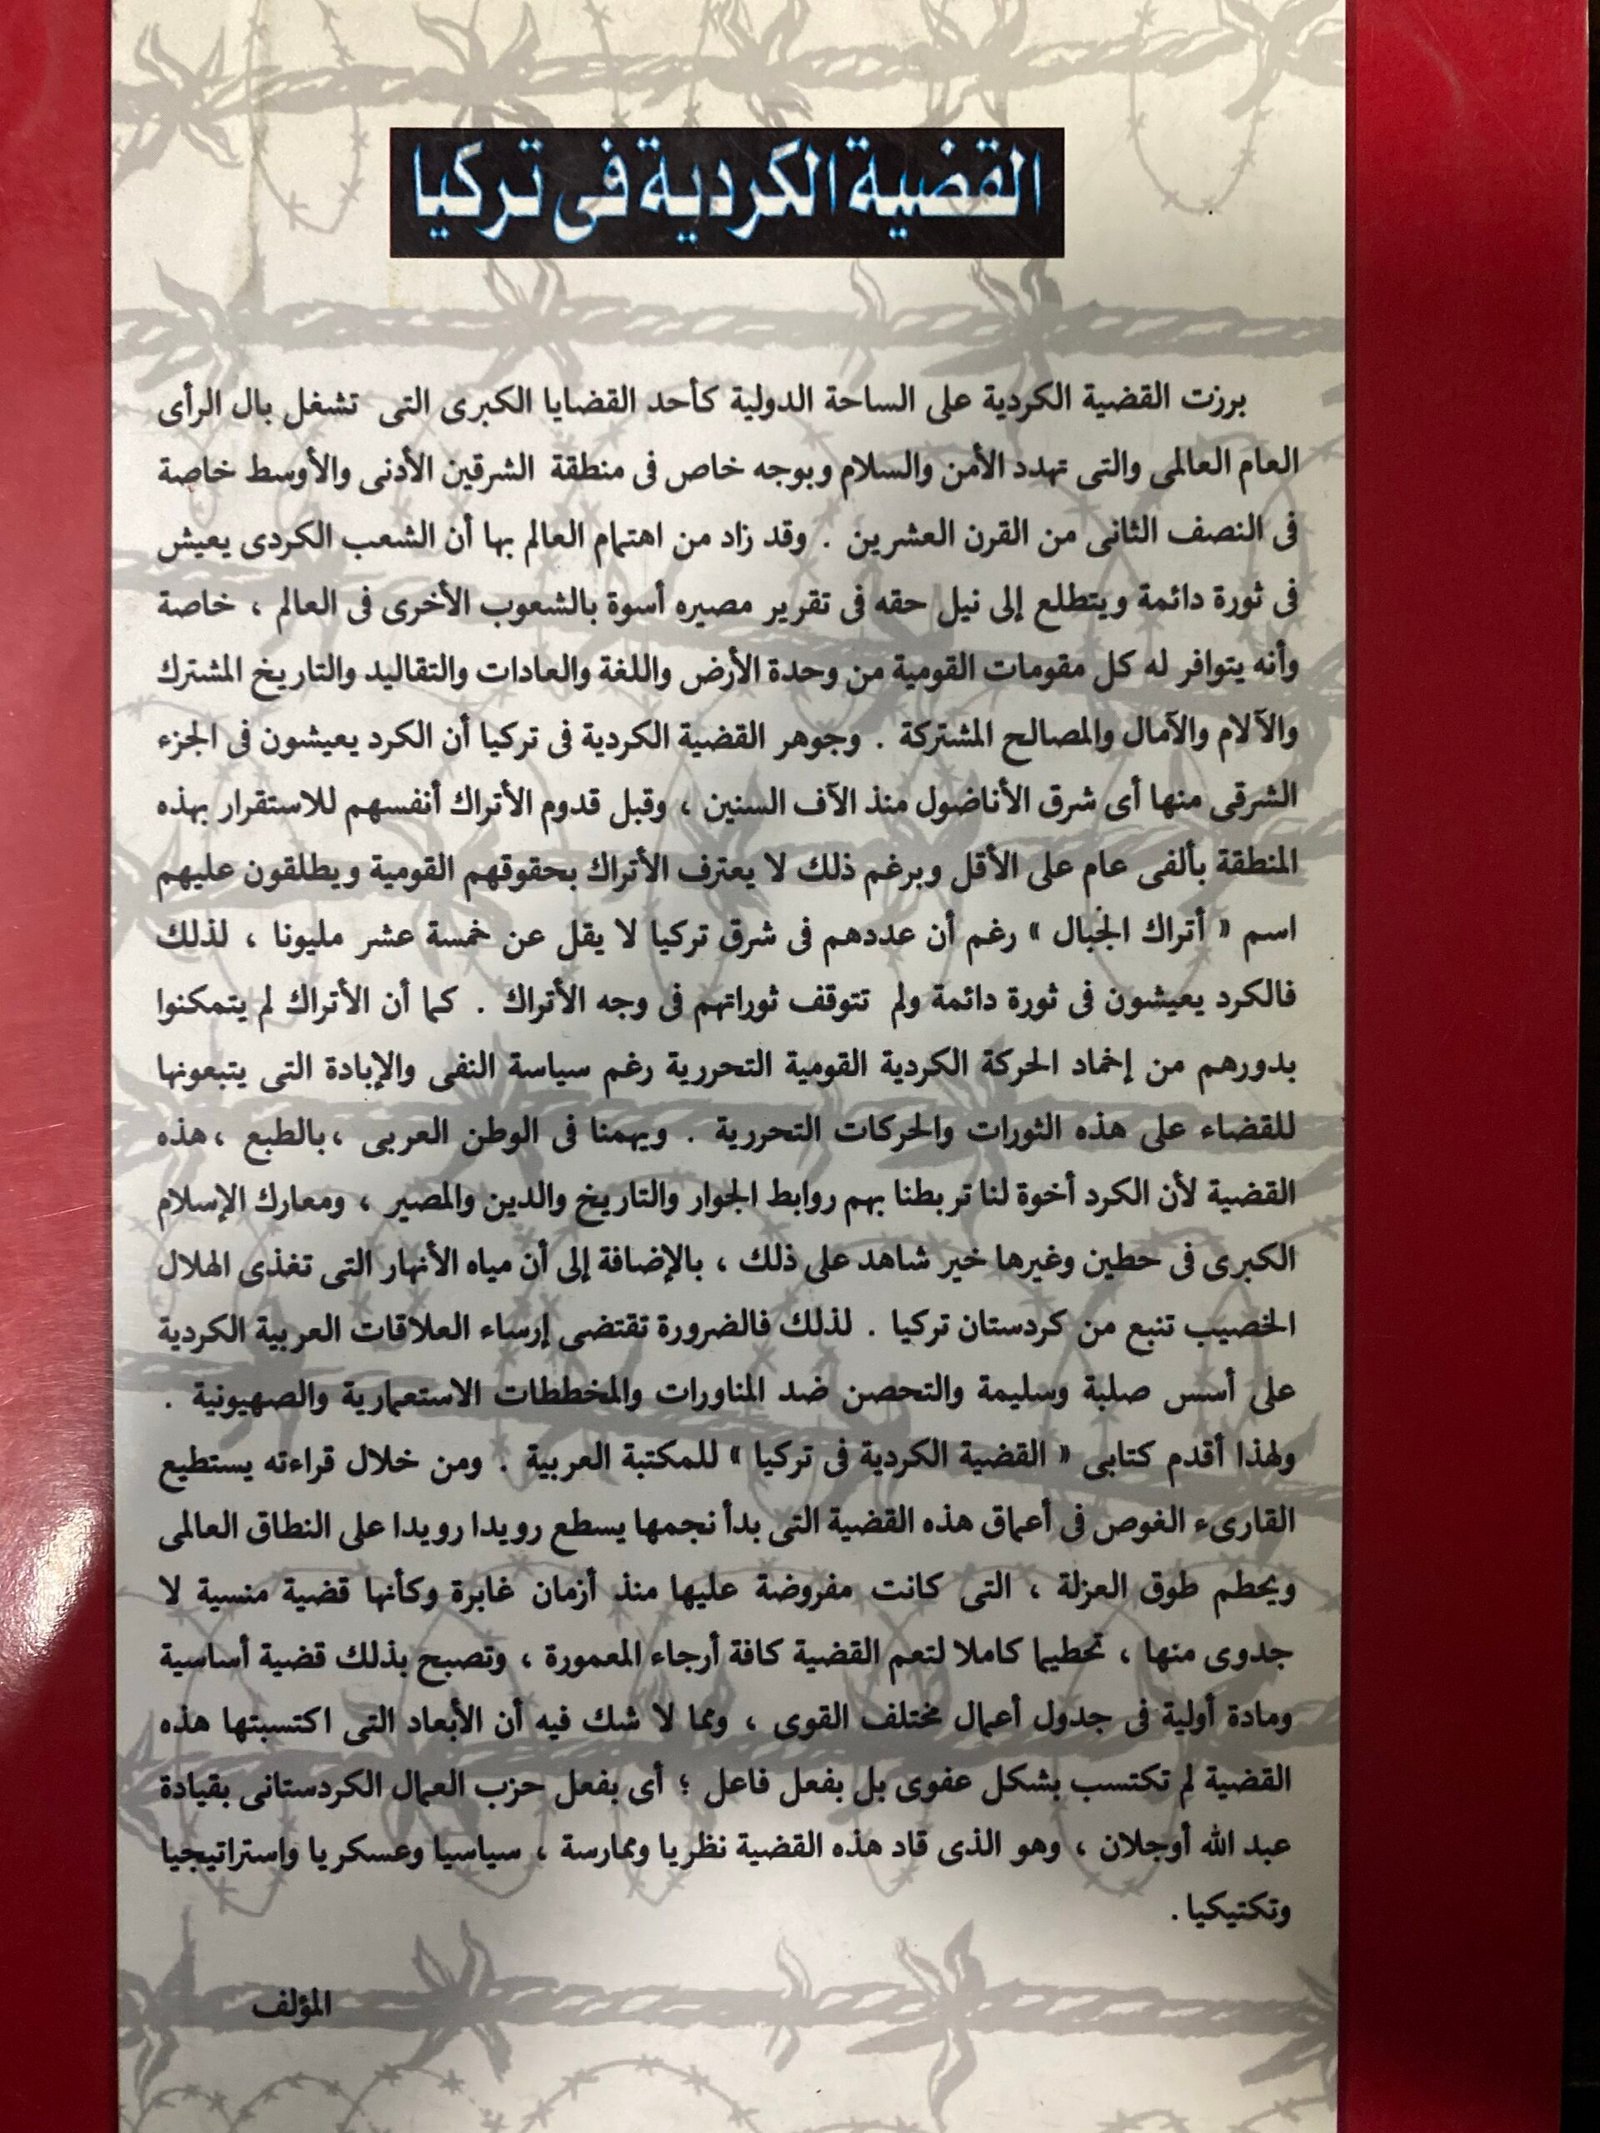 القضية الكردية فى تركيا
برزت القضية الكردية على الساحة الدولية كأحد القضايا الكبرى التى تشغل بال الرأى
العام العالمى والتى تهدد الأمن والسلام وبوجه خاص فى منطقة الشرقين الأدنى والأوسط خاصة
فى النصف الثانى من القرن العشرين . وقد زاد من اهتمام العالم بها أن الشعب الكردى يعيش
فى ثورة دائمة ويتطلع إلى نيل حقه فى تقرير مصيره أسوة بالشعوب الأخرى فى العالم ، خاصة
وأنه يتوافر له كل مقومات القومية من وحدة الأرض واللغة والعادات والتقاليد والتاريخ المشترك
والآلام والآمال والمصالح المشتركة . وجوهر القضية الكردية فى تركيا أن الكرد يعيشون فى الجزء
الشرقى منها أى شرق الأناضول منذ الآف السنين ، وقبل قدوم الأتراك أنفسهم للاستقرار بهذه
المنطقة بألفى عام على الأقل وبرغم ذلك لا يعترف الأتراك بحقوقهم القومية ويطلقون عليهم
اسم « أتراك الجبال » رغم أن عددهم فى شرق تركيا لا يقل عن خمسة عشر مليونا ، لذلك
فالكرد يعيشون فى ثورة دائمة ولم تتوقف ثوراتهم فى وجه الأتراك . كما أن الأتراك لم يتمكنوا
بدورهم من إخماد الحركة الكردية القومية التحررية رغم سياسة النفى والإبادة التى يتبعونها
للقضاء على هذه الثورات والحركات التحررية . ويهمنا فى الوطن العربى ،بالطبع ،هذه
القضية لأن الكرد أخوة لنا تربطنا بهم روابط الجوار والتاريخ والدين والمصير ، ومعارك الإسلام
الكبرى فى حطين وغيرها خير شاهد على ذلك ، بالإضافة إلى أن مياه الأنهار التى تغذى الهلال
الخصيب تنبع من كردستان تركيا . لذلك فالضرورة تقتضى إرساء العلاقات العربية الكردية
على أسس صلبة وسليمة والتحصن ضد المناورات والمخططات الاستعمارية والصهيونية .
ولهذا أقدم كتابى « القضية الكردية فى تركيا » للمكتبة العربية . ومن خلال قراءته يستطيع
القارىء الغوص فى أعماق هذه القضية التى بدأ نجمها يسطع رويدا رويدا على النطاق العالمى
ويحطم طوق العزلة ، التى كانت مفروضة عليها منذ أزمان غابرة وكأنها قضية منسية لا
جدوى منها ، تحطيما كاملا لتعم القضية كافة أرجاء المعمورة ، وتصبح بذلك قضية أساسية
ومادة أولية فى جدول أعمال مختلف القوى ، ومما لا شك فيه أن الأبعاد التى اكتسبتها هذه
القضية لم تكتسب بشكل عفوى بل بفعل فاعل ؛ أى بفعل حزب العمال الكردستانى بقيادة
عبد الله أوجلان ، وهو الذى قاد هذه القضية نظريا وممارسة ، سياسيا وعسكريا واستراتيجيا
وتكتيكيا .
المؤلف